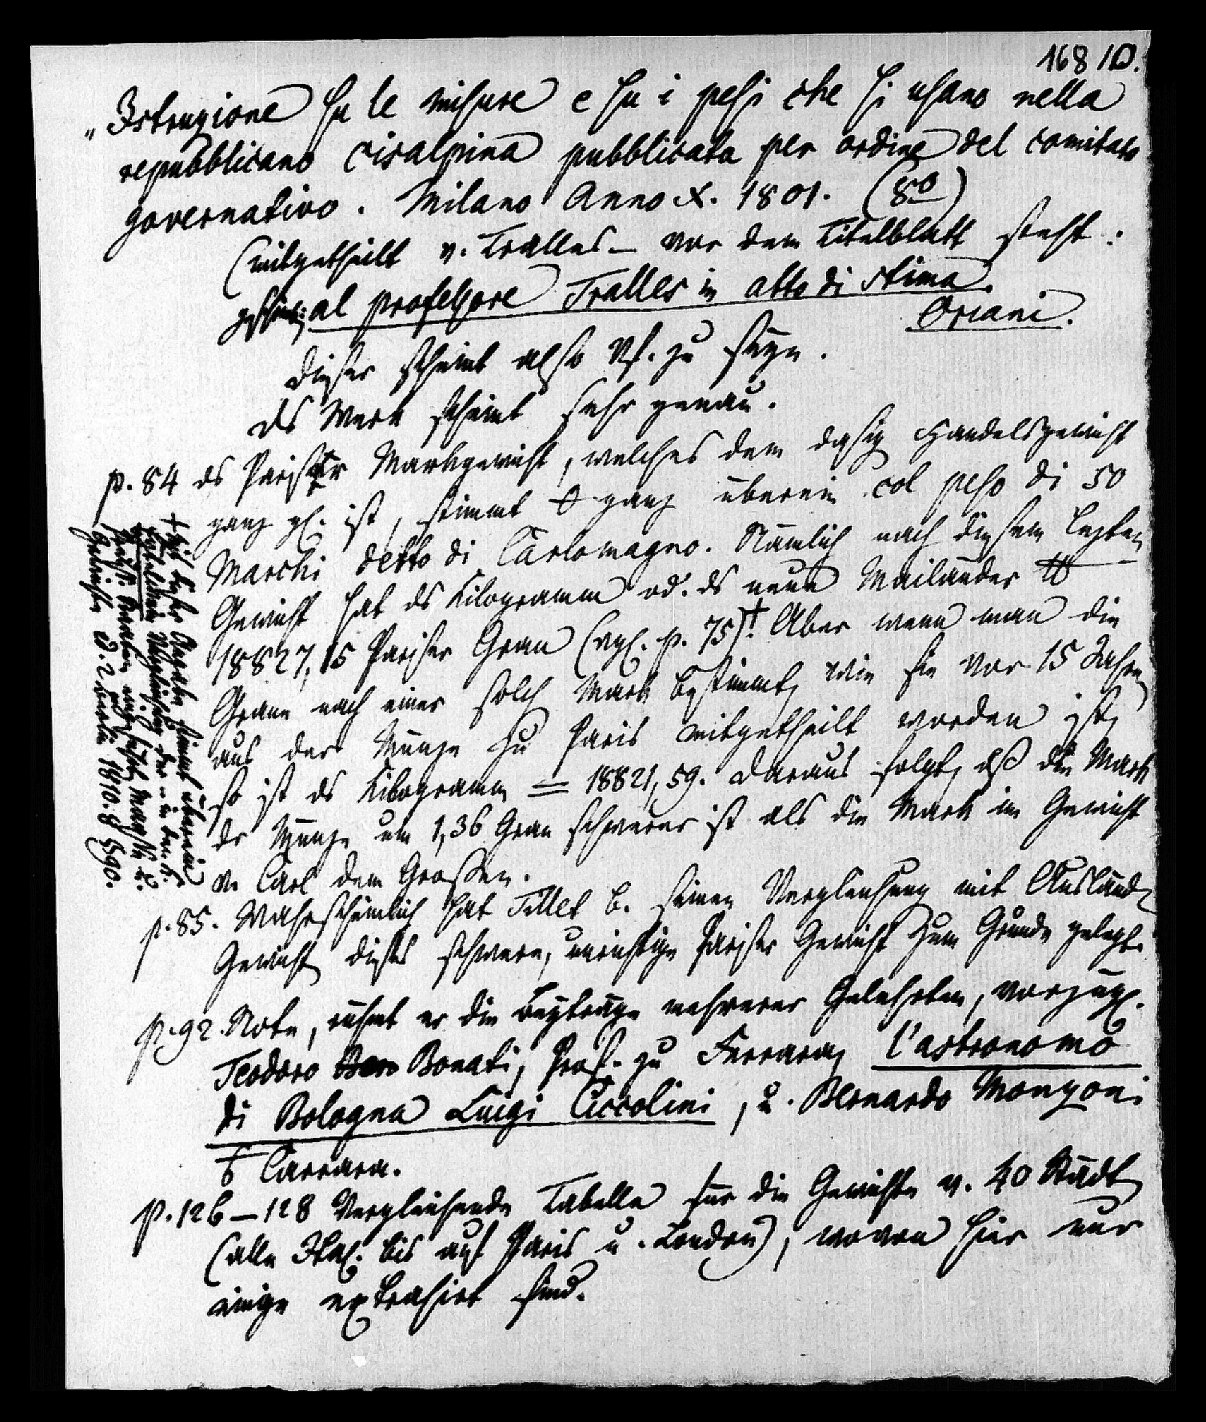 168 10.
„Istruzione su le misure e su i pesi che si usano nella
repubblicano cisalpina pubblicata per ordine del comitato
governativo. Milano Anno X. 1801. (8o)
(mitgetheilt v. Tralles – vor dem Titelblatt steht:
al professore Tralles in atto di stima.
Oriani.
Dieser scheint also Vf. zu seyn.
Ds Werk scheint sehr genau.
p. 84 ds Pariser Markgewicht, welches dem dasig Handelsgewicht
ganz gl. ist, stimmt ganz überein col peso di 50
Marchi detto di Carlomagno. Nämlich nach diesem letzten
Gewicht hat ds Kilogramm od. ds neue Mailänder ℔
18827,15 Pariser Gran (vgl. p. 75)†. Aber wenn man die
Grane nach einer solch Mark bestimmt, wie sie vor 15 Jahren
aus der Münze zu Paris mitgetheilt worden ist,
so ist ds Kilogramm = 18821,59. Daraus folgt, dß die Mark
dr Münze um 1,36 Gran schwerer ist als die Mark im Gewicht
v. Carl dem Großen.
p. 85. Wahrscheinlich hat Tillet b. seiner Vergleichung mit Ausländ
Gewicht dieses schwere, unrichtige Pariser Gewicht zum Grunde gelegt.
p. 92. Note, rühmt er die Beyträge mehrerer Gelehrten, vorzügl.
Teodoro Bonati, Prof. zu Ferrara, l'astronomo
di Bologna Luigi Ciccolini, u. Bernardo Monzoni
Carrara.
p. 126–128 Vergleichende Tabelle für die Gewichte v. 40 Städt
(alle Ital. bis auf Paris u. London), wovon hier nur
einige extrahirt sind.
† Mit dieser Angabe stimmt überein
Vergleichung der in den
Gewichte Berlin 1810. 8 S. 90.